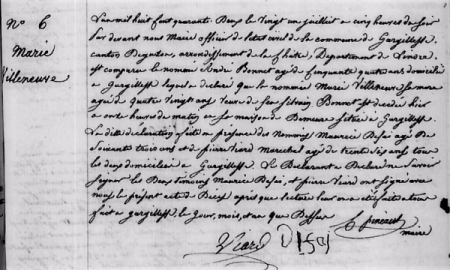 N° 6
Marie
Villeneuve
L'an mil huit cent quarante Deux le vingt un juillet a cinq heures du soir
par devant nous Maire officier de l'etat civil de la commune de Gargilesse
canton Deguzon, arrondissement de la Châtre, Département de L'indre
est comparu le nommé André Bonnet agé de cinquante quatre ans domicilié
a Gargilesse lequel a declaré que la nommée Marie Villeneuve sa mere
agée de Quatre vingt ans veuve de feu Silvain Bonnet est decedée hier
a onze heures du matin en sa maison Demeure située a Gargilesse
La ditte declaration faitte en présence des Nommés Maurice agé De
soixante trois ans et de pierre Viard marechal agé de trente six ans tous
les deux domiciliés a Gargilesse Le Declarant a Declaré ne savoir
signer les Deux temoins Maurice et pierre Viard ont signé avec
nous le présent acte de Décès après que lecture leur en a eté faitte
fait a gargilesse le jour, mois, et an que Dessus
Viard
maire